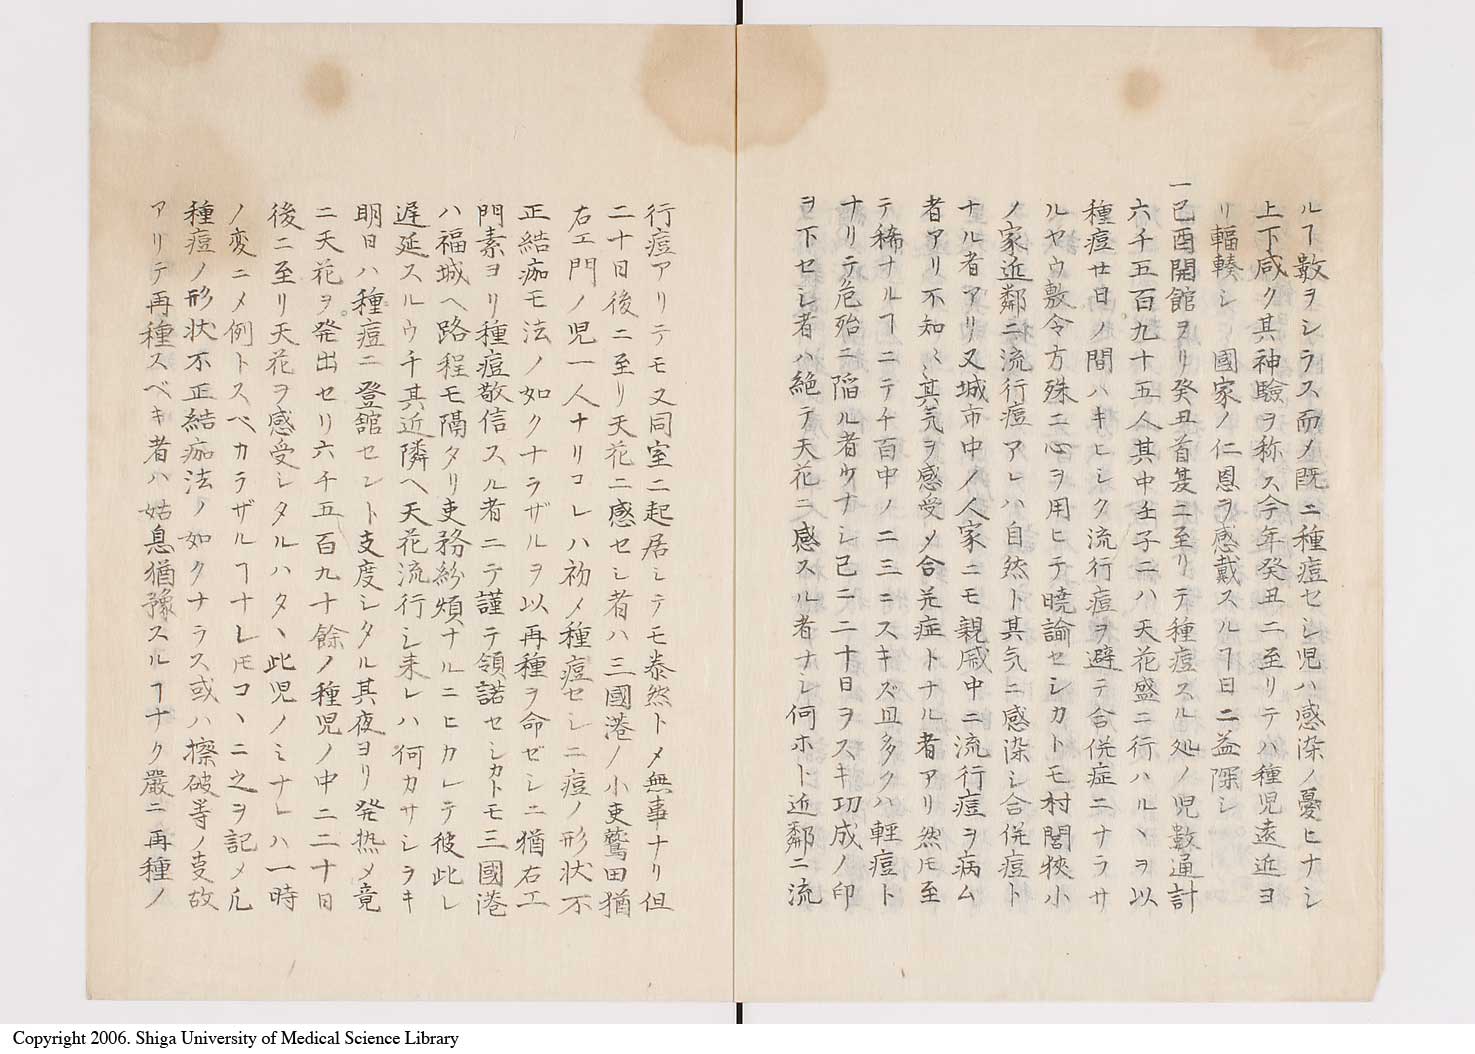 ルヿ數ヲシラス而メ既ニ種痘セシ児ハ感染ノ憂ヒナシ
上下咸ク其神驗ヲ称ス今年癸丑ニ至リテハ種児遠近ヨ
リ輻輳シ國家ノ仁恩ヲ感戴スルヿ日ニ益深シ
一己酉開館ヲリ癸丑首夏ニ至リテ種痘スル処ノ児數通計
六千五百九十五人其中壬子ニハ天花盛ニ行ハルヽヲ以
種痘廿日ノ間ハキヒシク流行痘ヲ避テ合併症ニナラサ
ルヤウ敷令方殊ニ心ヲ用ヒテ暁諭セシカトモ村閭狹小
ノ家近鄰ニ流行痘アレハ自然ト其気ニ感染シ合併痘ト
ナル者アリ又城市中ノ人家ニモ親戚中ニ流行痘ヲ病ム
者アリ不知〻其気ヲ感受メ合并症トナル者アリ然𪜈至
テ稀ナルヿニテ千百中ノ二三ニスキズ且多クハ輕痘ト
ナリテ危殆ニ陷ル者少ナシ已ニ二十日ヲスキ功成ノ印
ヲ下セシ者ハ絶テ天花ニ感スル者ナシ何ホト近鄰ニ流
行痘アリテモ又同室ニ起居シテモ泰然トメ無事ナリ但
二十日後ニ至リ天花ニ感セシ者ハ三國港ノ小吏鷲田猶
右エ門ノ児一人ナリコレハ初メ種痘セシニ痘ノ形状不
正結痂モ法ノ如クナラザルヲ以再種ヲ命ゼシニ猶右エ
門素ヨリ種痘敬信スル者ニテ謹テ領諾セシカトモ三國港
ハ福城ヘ路程モ隔タリ吏務紛煩ナルニヒカレテ彼此レ
遅延スルウチ其近隣ヘ天花流行シ来レハ何カサシヲキ
明日ハ種痘ニ登舘セント支度シタル其夜ヨリ発熱メ竟
ニ天花ヲ発出セリ六千五百九十餘ノ種児ノ中ニ二十日
後ニ至リ天花ヲ感受シタルハタヽ此児ノミナレハ一時
ノ変ニメ例トスベカラザルヿナレ𪜈コヽニ之ヲ記メ凡
種痘ノ形状不正結痂法ノ如クナラス或ハ擦破等ノ叓故
アリテ再種スベキ者ハ姑息猶豫スルヿナク嚴ニ再種ノ
Copyright 2006. Shiga University of Medical Science Library